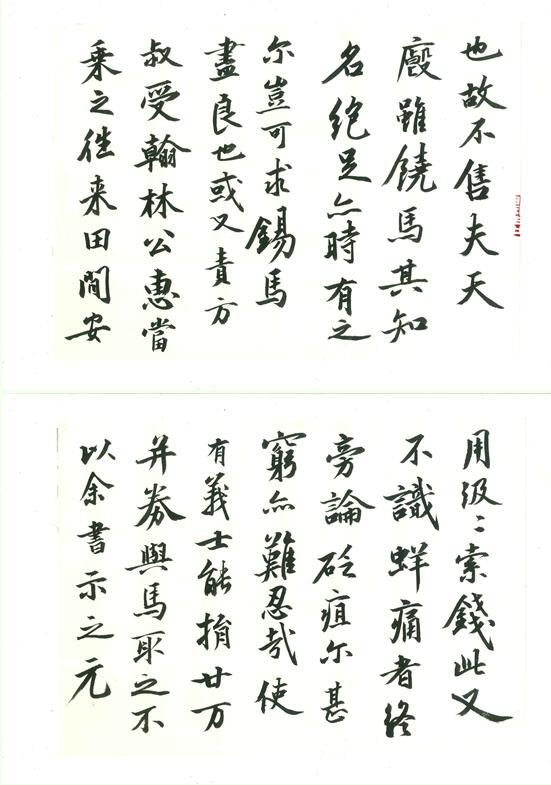 也故不售夫天
廄雖饒馬其知
名絶足亦時有之
尔豈可求錫馬
盡良也或又責方
叔受翰林公惠當
乘之往来田間安
用汲〻索錢此又
不識蛘痛者從
旁論砭疽尔甚
窮亦難忍哉使
有義士能捐廿万
并券與馬取之不
以余書示之元